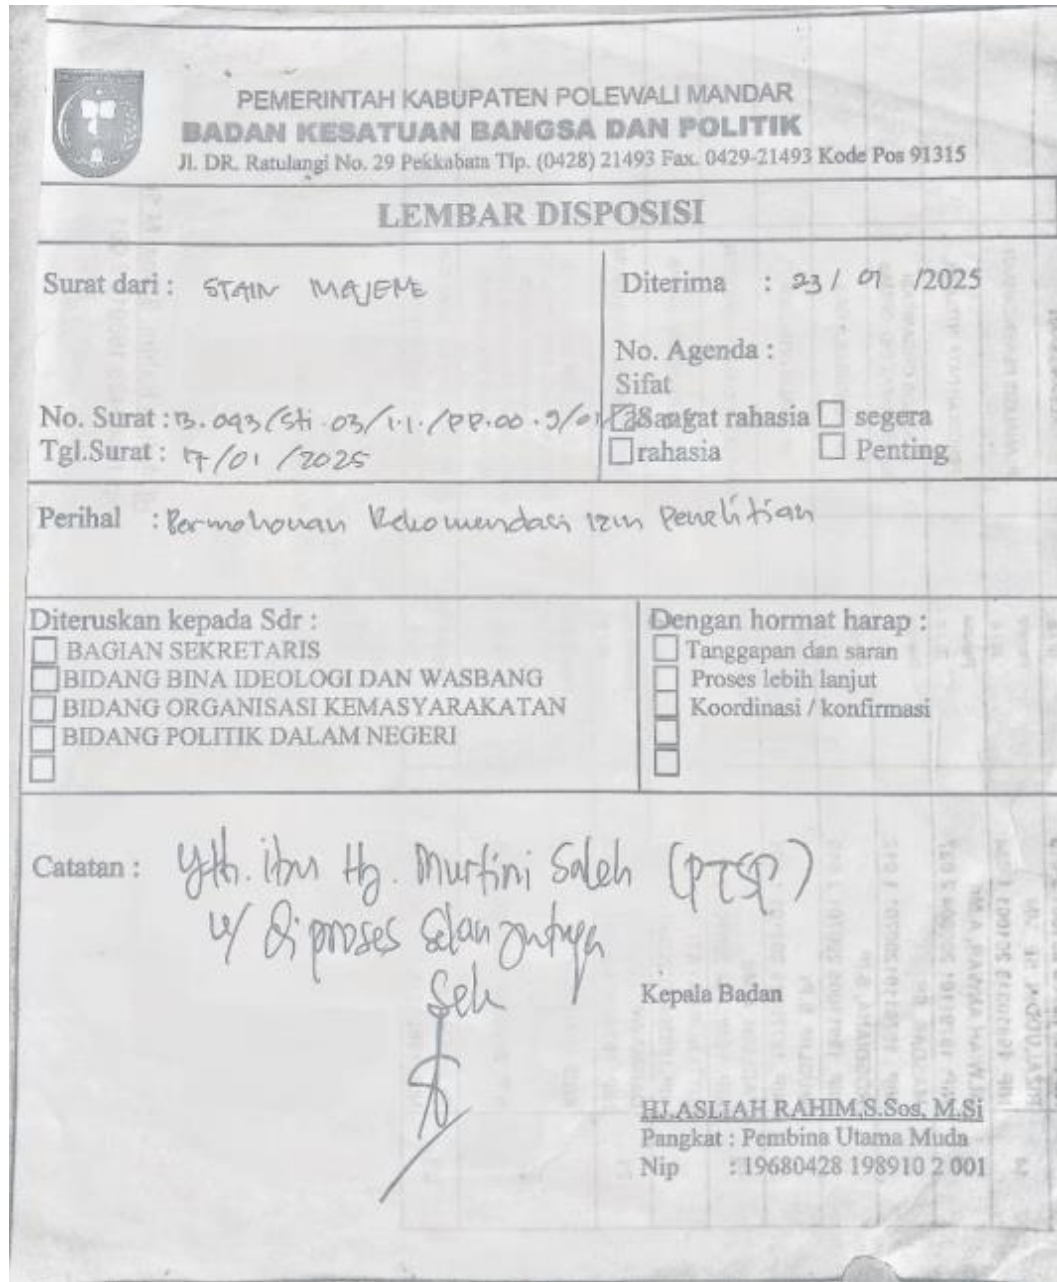 PEMERINTAH KABUPATEN POLEWALI MANDAR
BADAN KESATUAN BANGSA DAN POLITIK
Jl. DR. Ratulangi No. 29 Pekkabata Tlp. (0428) 21493 Fax. 0429-21493 Kode Pos 91315
LEMBAR DISPOSISI
Surat dari : STAIN MAJENE
Diterima : 23 / 01 /2025
No. Agenda :
Sifat
No. Surat : B.093/Sti.03/1.1./PP.00.9/01
Sangat rahasia segera
Tgl.Surat : 17/01/2025
rahasia Penting
Perihal : Permohonan Rekomendasi izin Penelitian
Diteruskan kepada Sdr :
BAGIAN SEKRETARIS
BIDANG BINA IDEOLOGI DAN WASBANG
BIDANG ORGANISASI KEMASYARAKATAN
BIDANG POLITIK DALAM NEGERI
Dengan hormat harap :
Tanggapan dan saran
Proses lebih lanjut
Koordinasi / konfirmasi
Catatan : Yth. ibu Hj. Murtini Saleh (PTSP)
u/ di proses selanjutnya
Kepala Badan
HJ.ASLIAH RAHIM,S.Sos, M.Si
Pangkat : Pembina Utama Muda
Nip : 19680428 198910 2 001